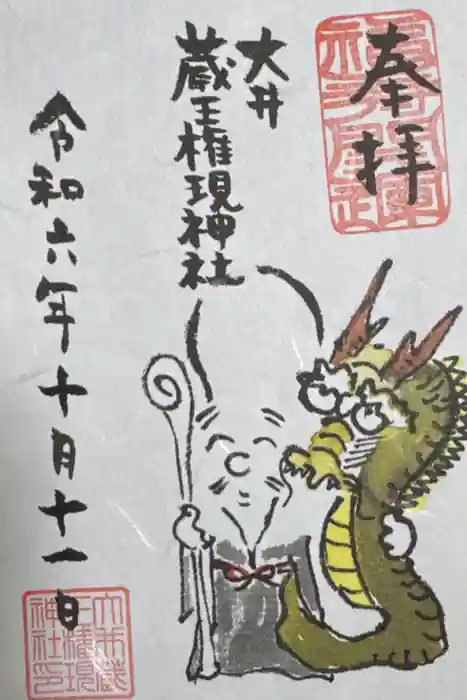 奉拝
大井
蔵王権現神社
令和六年十月十一日
大井蔵
王権現
神社印